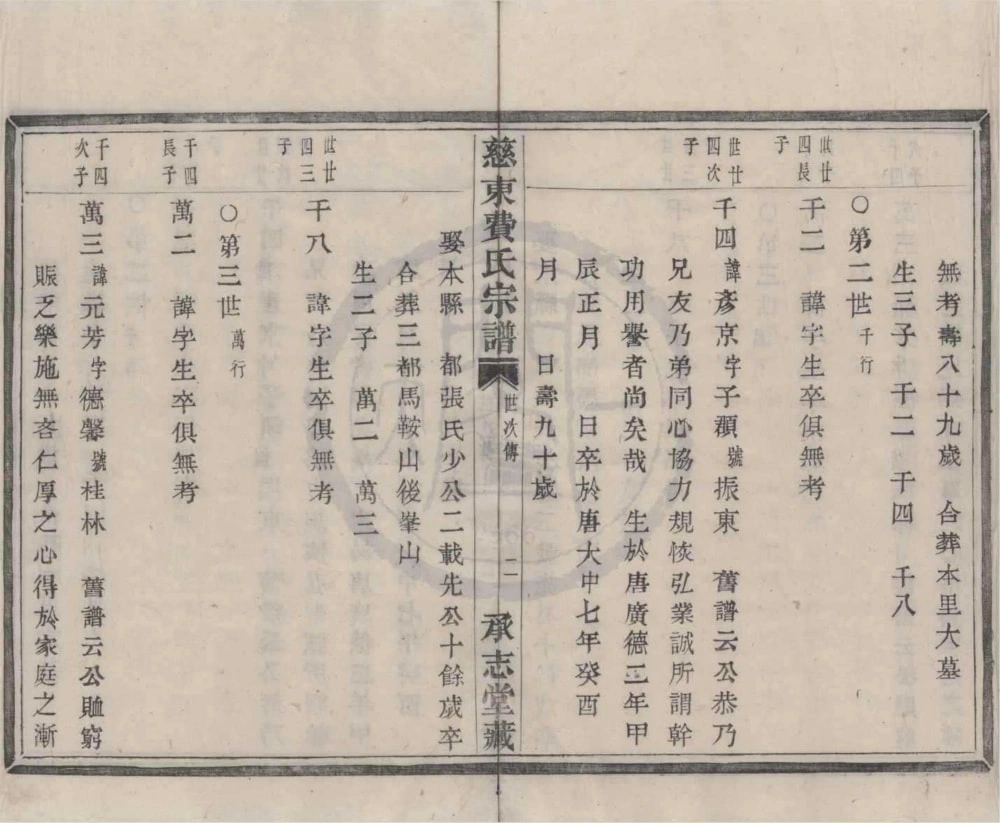 無考壽八十九歲 合葬本里大墓
生三子 千二 千四 千八
○第二世千行
世廿四長子
千二 諱字生卒俱無考
世廿四次子
千四諱彥京字子顏號振東 舊譜云公恭乃
兄友乃弟同心協力規恢弘業誠所謂幹
功用譽者尚矣哉 生於唐廣德二年甲
辰正月 日卒於唐大中七年癸酉
月 日壽九十歲
慈東費氏宗譜 世次傳 二 承志堂藏
娶本縣 都張氏少公二載先公十餘歲卒
合葬三都馬鞍山後峯山
生二子 萬二 萬三
世廿四三子
千八 諱字生卒俱無考
○第三世萬行
千四長子
萬二 諱字生卒俱無考
千四次子
萬三諱元芳字德馨號桂林 舊譜云公賉窮
賑乏樂施無吝仁厚之心得於家庭之漸